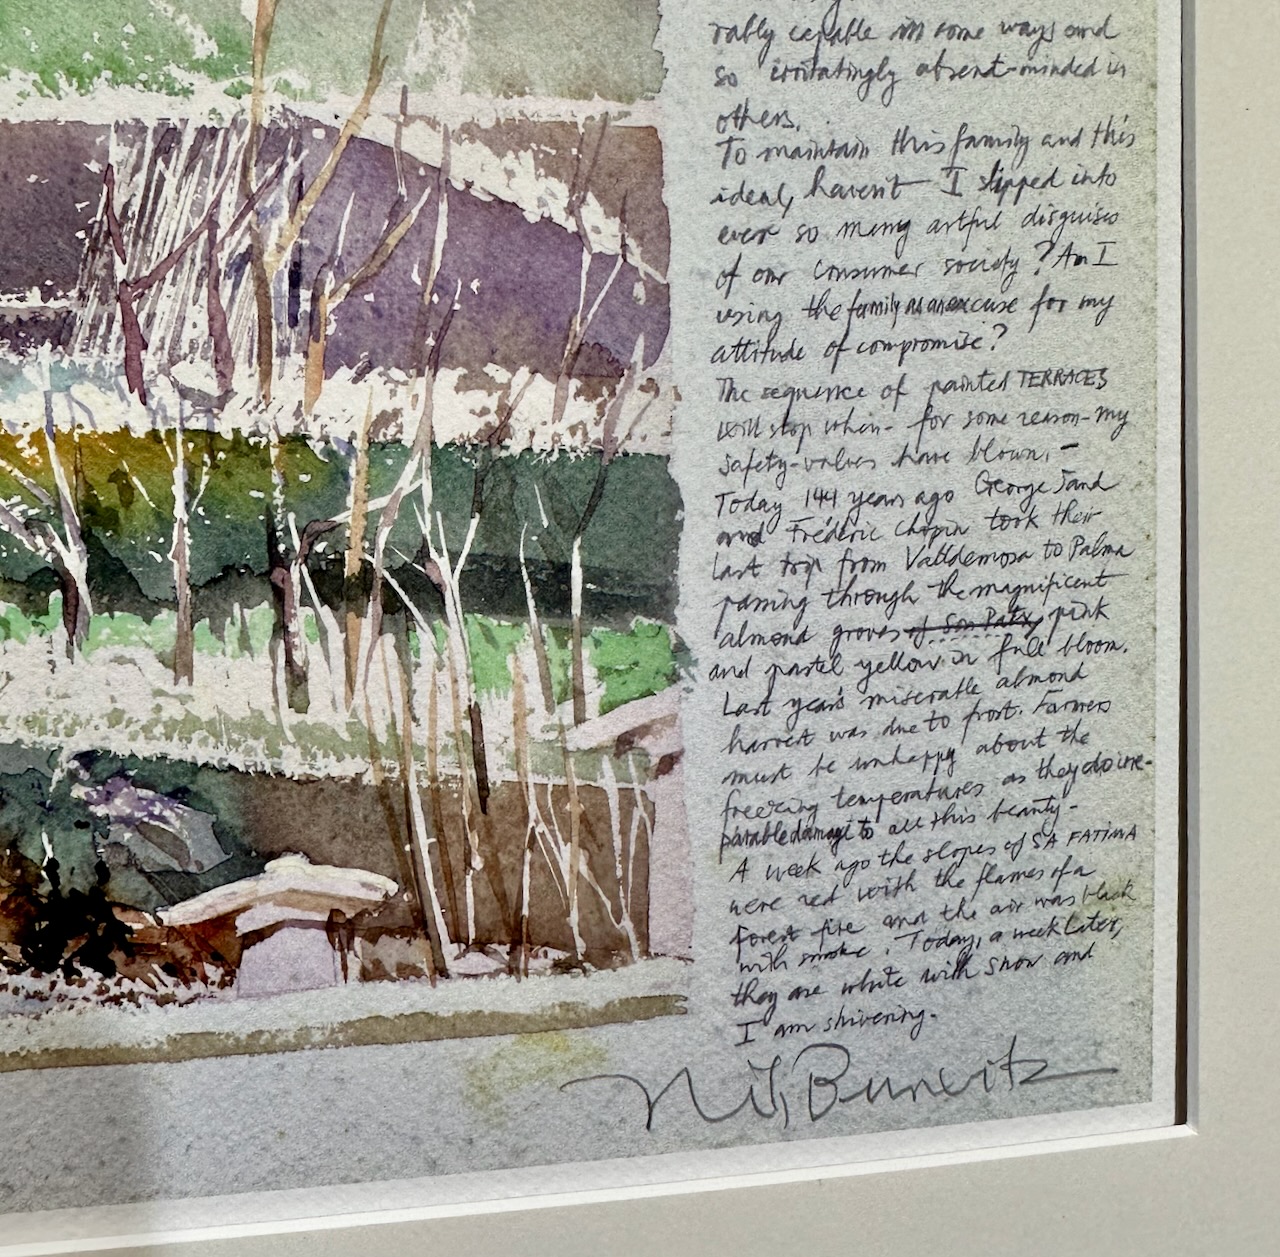 rably capable in some ways and
so irritatingly absent-minded in
others.
To maintain this family and this
ideal, haven't I slipped into
ever so many artful disguises
of our consumer society? Am I
using the family as an excuse for my
attitude of compromise?
The sequence of painted TERRACES
will stop when - for some reason - my
safety-valves have blown. -
Today 144 years ago George Sand
and Frédéric Chopin took their
last trip from Valldemosa to Palma
passing through the magnificent
almond groves of Son Patx, pink
and pastel yellow in full bloom.
Last year's miserable almond
harvest was due to frost. Farmers
must be unhappy about the
freezing temperatures as they do irre-
parable damage to all this beauty -
A week ago the slopes of SA FATIMA
were red with the flames of a
forest fire and the air was black
with smoke. Today, a week later,
they are white with snow and
I am shivering.
Nils Burwitz